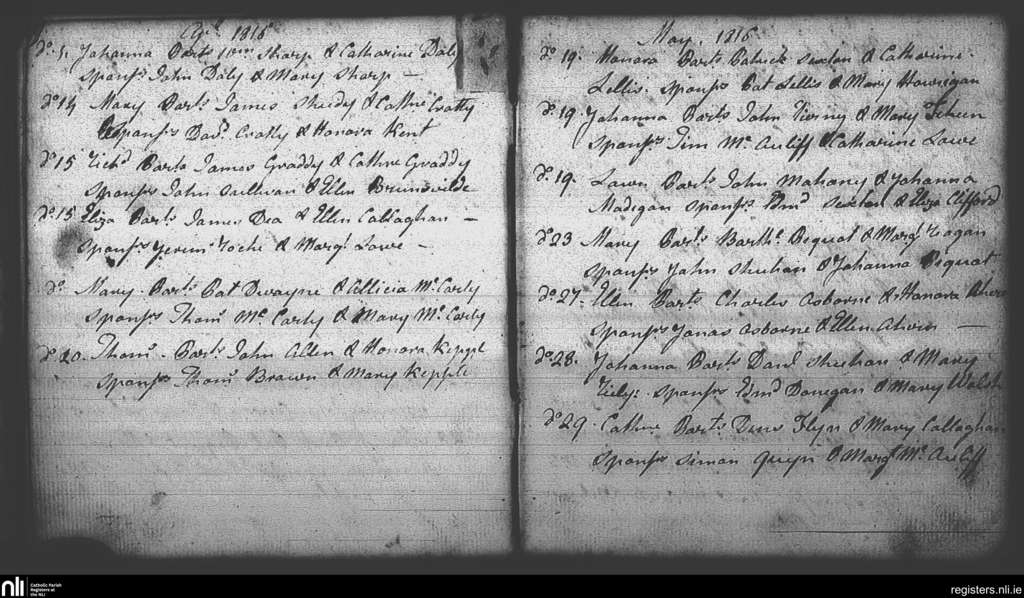 1816
Johanna Parts Sharp & Catharine Daly
Sponsrs John Daly & Mary Sharp —
do 14 Mary Parts James Sheedy & Cathne Crotty
Sponsrs Davd Crotty & Honora Kent
do 15 Parts James Graddy & Cathne Graddy
Sponsrs John Sullivan & Ellen
do 15 Eliza Parts James Dea & Ellen Callaghan —
Sponsrs Roche & Margt Lowe —
do Mary Parts Pat Dwayne & Allicia McCarty
Sponsrs Thos McCarty & Mary McCarty
do 20 Thos Parts John Allen & Honora Kepple
Sponsrs Thos Brown & Mary Kepple
May 1816
do 19 Honora Parts Patrick Sexton & Catharine
Lellis Sponsrs Pat Lellis & Mary Hourigan
do 19 Johanna Parts John Tierny & Mary
Sponsrs Tim McAuliff & Catharine Lowe
do 19 Parts John Mahony & Johanna
Madigan Sponsrs Edmd Sexton & Eliza Clifford
do 23 Mary Parts Barthw & Margt Reagan
Sponsrs John Shechan & Johanna
do 27 Ellen Parts Charles Osborne & Honora Ahern
Sponsrs Jonas Osborne & Ellen Ahern —
do 28 Johanna Parts Danl Sheehan & Mary
Sponsrs Edmd Donegan & Mary Walsh
do 29 Cathne Parts Flyn & Mary Callaghan
Sponsrs Simon Quyn & Margt McAuliff
nli
Catholic Parish
Registers at
the NLI
registers.nli.ie